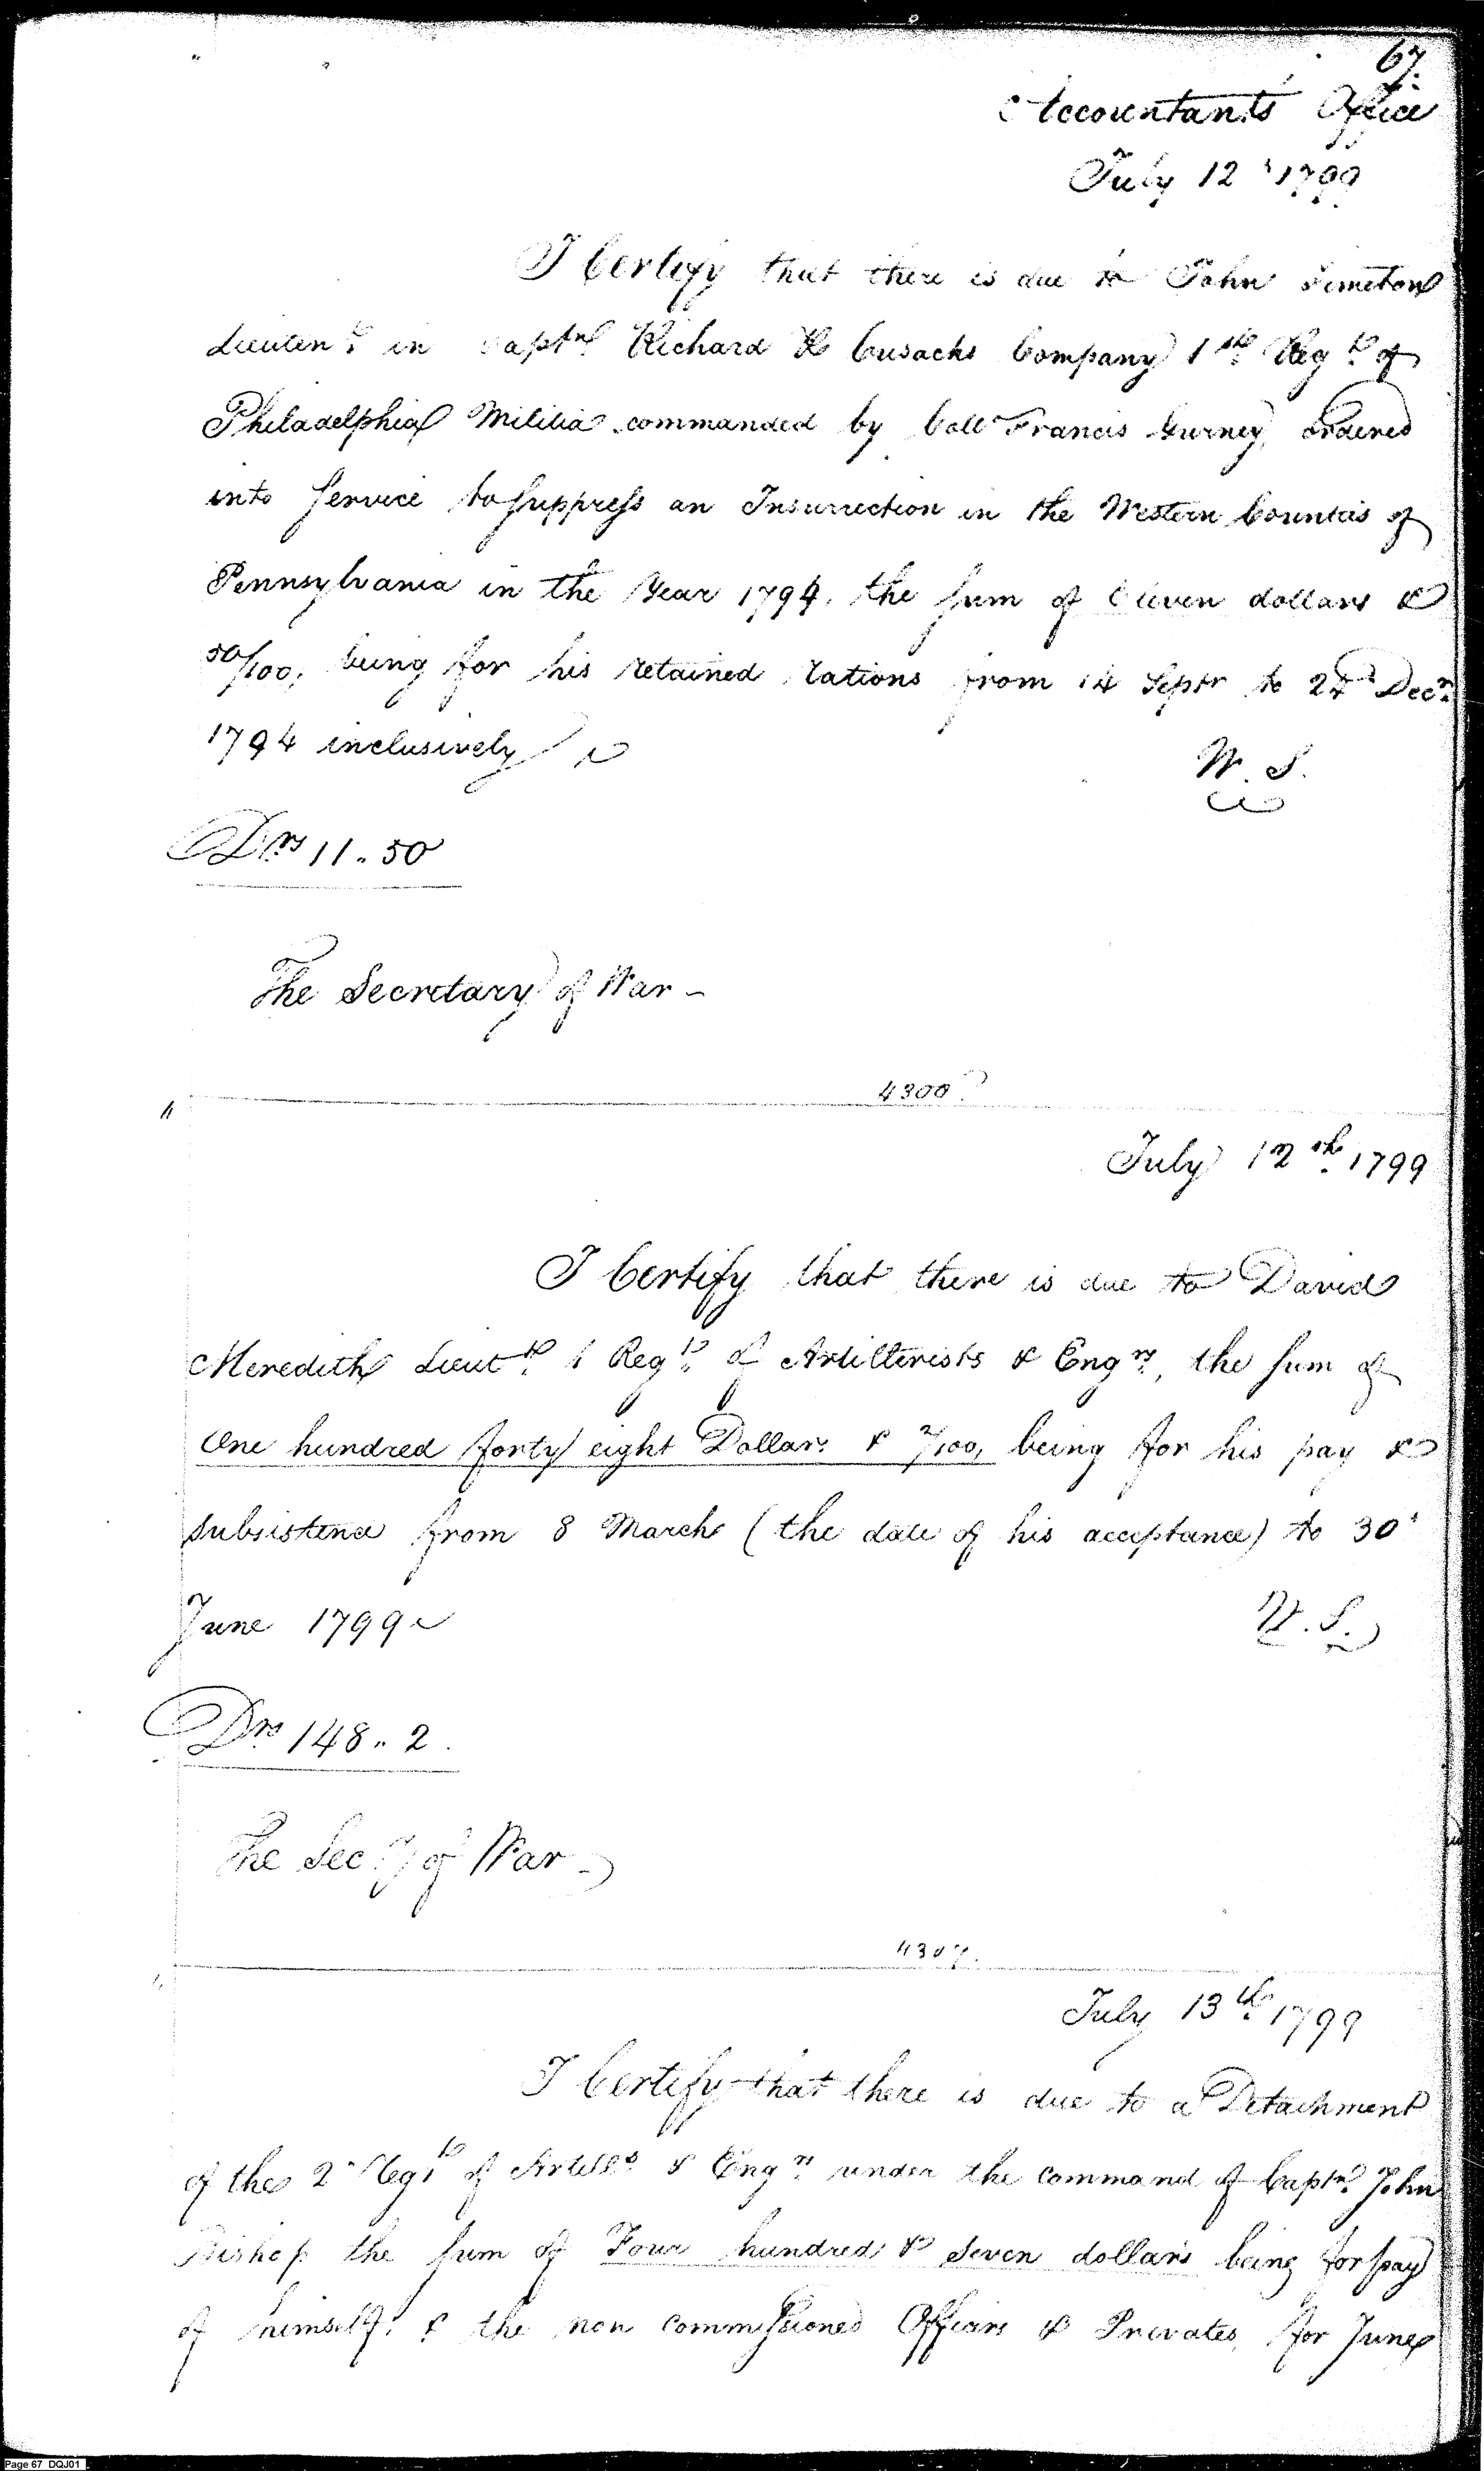 67.
Accountants Office
July 12 1799
I Certify that there is due to John Simeton
Lieutent in Captn Richard Cusacks Company 1st Regt of
Philadelphia Militia commanded by Coll Francis Gurney, ordered
into Service to suppress an Insurrection in the Western Counties of
Pennsylvania in the Year 1794, the sum of Eleven dollars &
50/100, being for his retained rations from 14 Septr to 24 Decr
1794 inclusively
W. S.
Drs 11.. 50
The Secretary of War -
4300
July 12th 1799
I Certify that there is due to David
Meredith Lieutt 1 Regt of Artillerists & Engrs, the sum of
One hundred forty eight Dollars & 2/100, being for his pay &
subsistence from 8 March (the date of his acceptance) to 30
June 1799
W. S.
Drs 148.. 2.
The Secy of War -
4307.
July 13th 1799
I Certify that there is due to a Detachment
of the 2 Regt of Artills & Engrs under the command of Captn John
Bishop the sum of Four hundred & Seven dollars being for pay
of himself & the non commissioned Officers & Privates, for June
Page 67 DQJ01